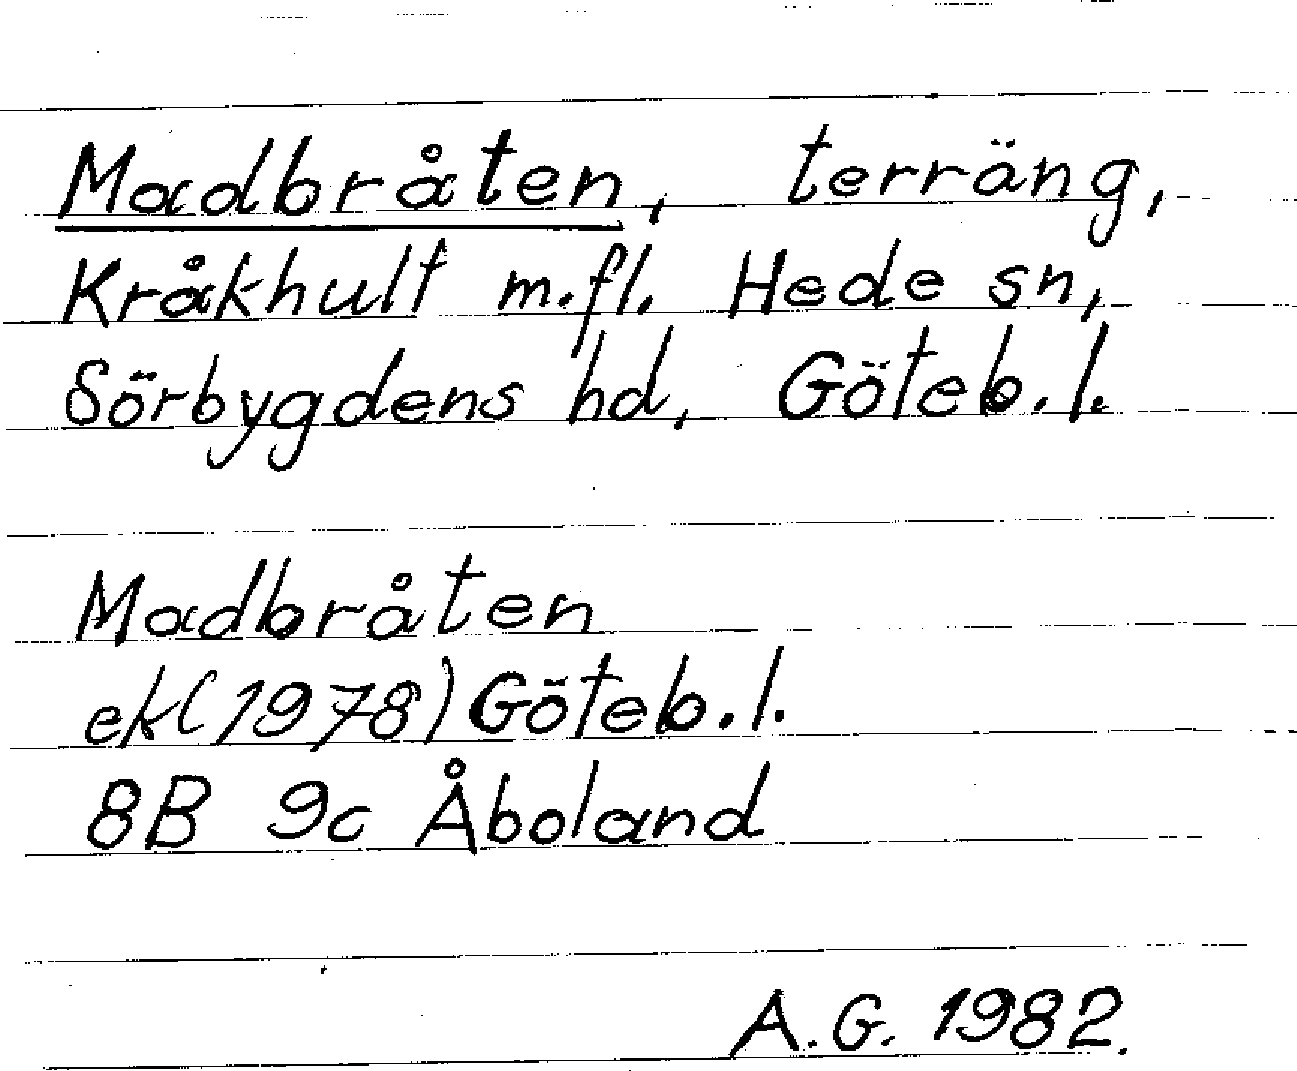 Madbråten, terräng,
Kråkhult m.fl. Hede sn,
Sörbygdens hd, Göteb. l.
Madbråten
ek(1978) Göteb. l.
8B 9c Åboland
A.G. 1982.